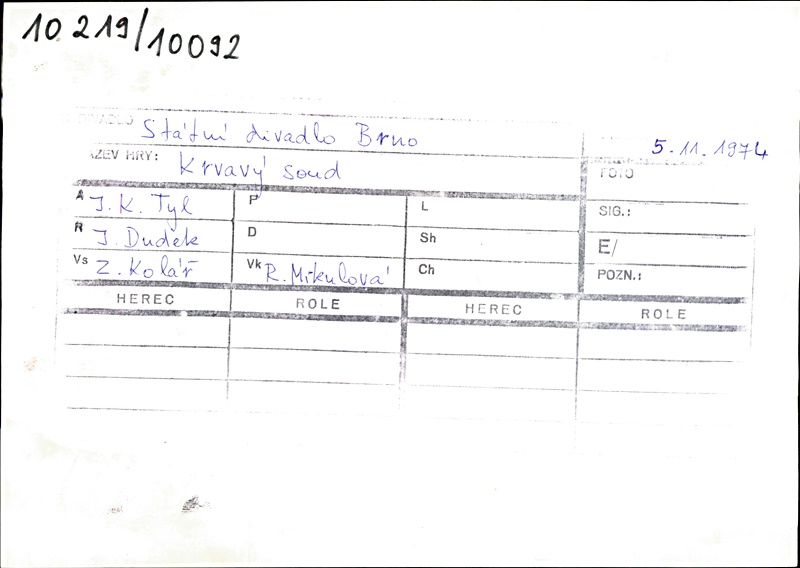 10219/10092
DIVADLO Státní divadlo Brno 5.11.1974
NÁZEV HRY: Krvavý soud FOTO
A J. K. Tyl P L SIG.:
R J. Dudek D Sh E/
Vs Z. Kolář Vk R. Mikulová Ch POZN.:
HEREC ROLE HEREC ROLE